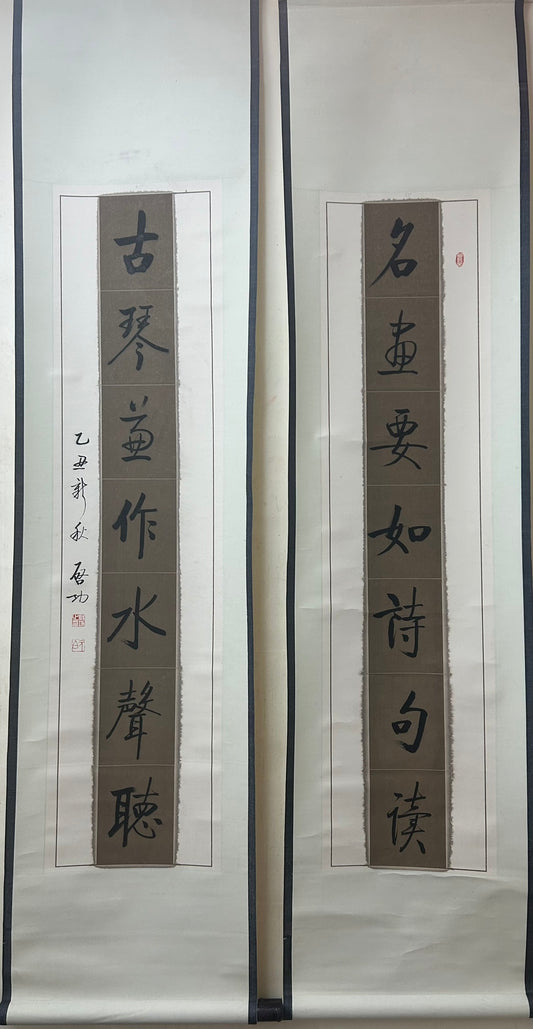 名画要如詩句读
古琴兼作水聲聽
乙丑新秋 启功